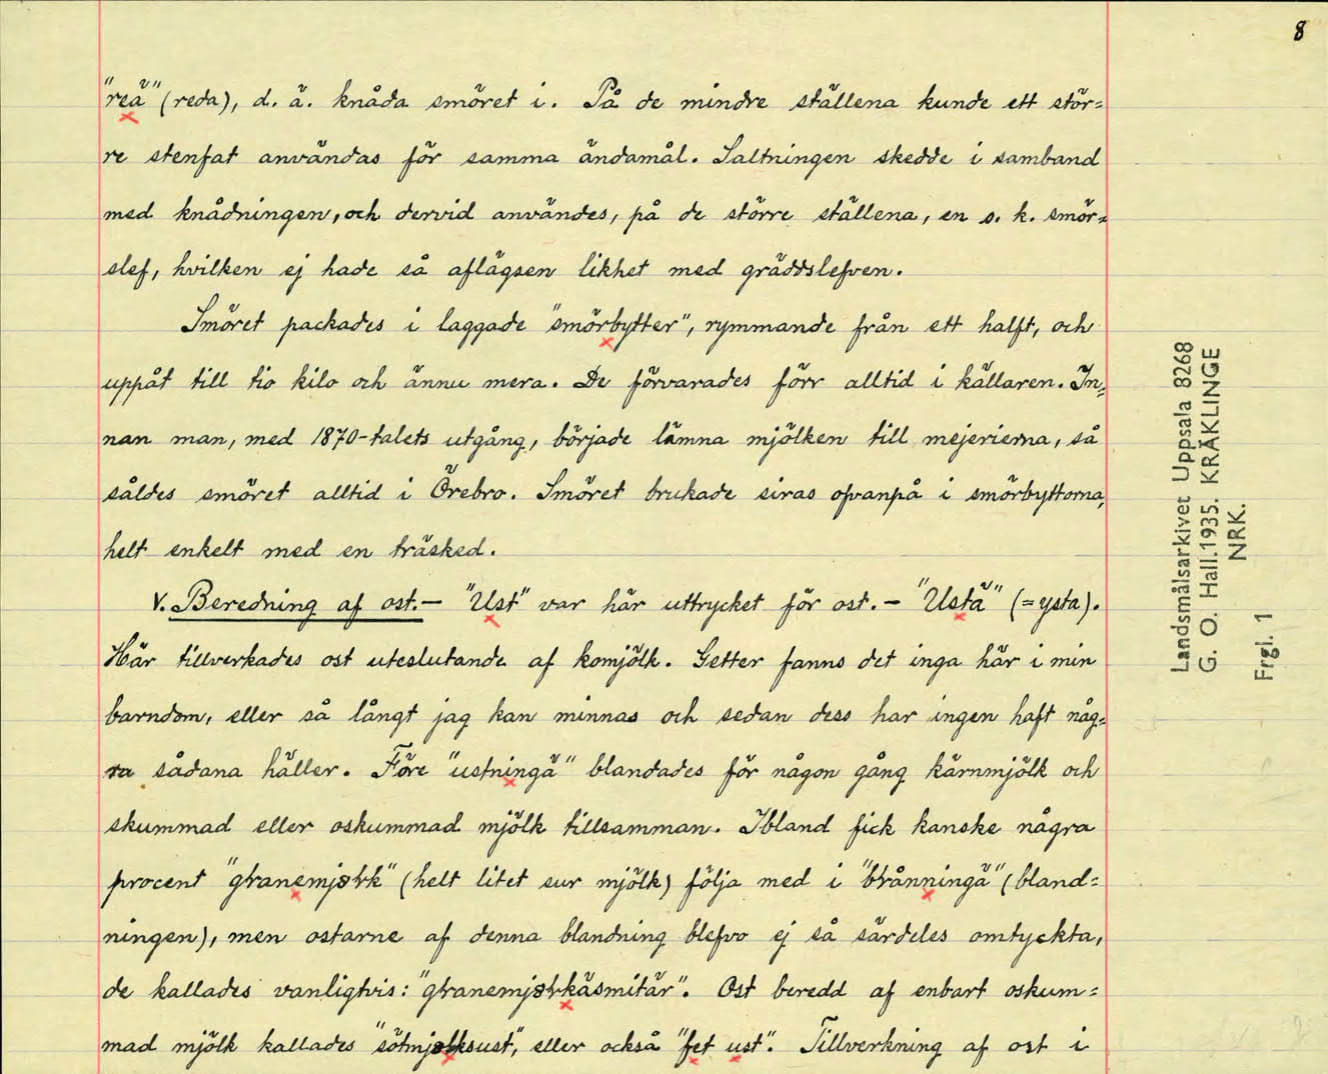 8
"reä" (reda), d. ä. knåda smöret i. På de mindre ställena kunde ett stör=
re stenfat användas för samma ändamål. Saltningen skedde i samband
med knådningen, och dervid användes, på de större ställena, en s. k. smör=
slef, hvilken ej hade så aflägsen likhet med gräddslefven.
Smöret packades i laggade "smörbytter", rymmande från ett halft, och
uppåt till tio kilo och ännu mera. De förvarades förr alltid i källaren. In=
nan man, med 1870-talets utgång, började lämna mjölken till mejerierna, så
såldes smöret alltid i Örebro. Smöret brukade siras ofvanpå i smörbyttorna,
helt enkelt med en träsked.
V. Beredning af ost.- "Ust" var här uttrycket för ost.- "Ustä" (=ysta).
Här tillverkades ost uteslutande af komjölk. Getter fanns det inga här i min
barndom, eller så långt jag kan minnas och sedan dess har ingen haft någ=
ra sådana häller. Före "ustningä" blandades för någon gång kärnmjölk och
skummad eller oskummad mjölk tillsamman. Ibland fick kanske några
procent "granemjørk" (helt litet sur mjölk) följa med i "brånningä" (bland=
ningen), men ostarne af denna blandning blefvo ej så särdeles omtyckta,
de kallades vanligtvis: "granemjørkäsmitär". Ost beredd af enbart oskum=
mad mjölk kallades "sötmjølksust", eller också "fet ust". Tillverkning af ost i
Landsmålsarkivet Uppsala 8268
G. O. Hall. 1935. KRÄKLINGE
NRK.
Frgl. 1